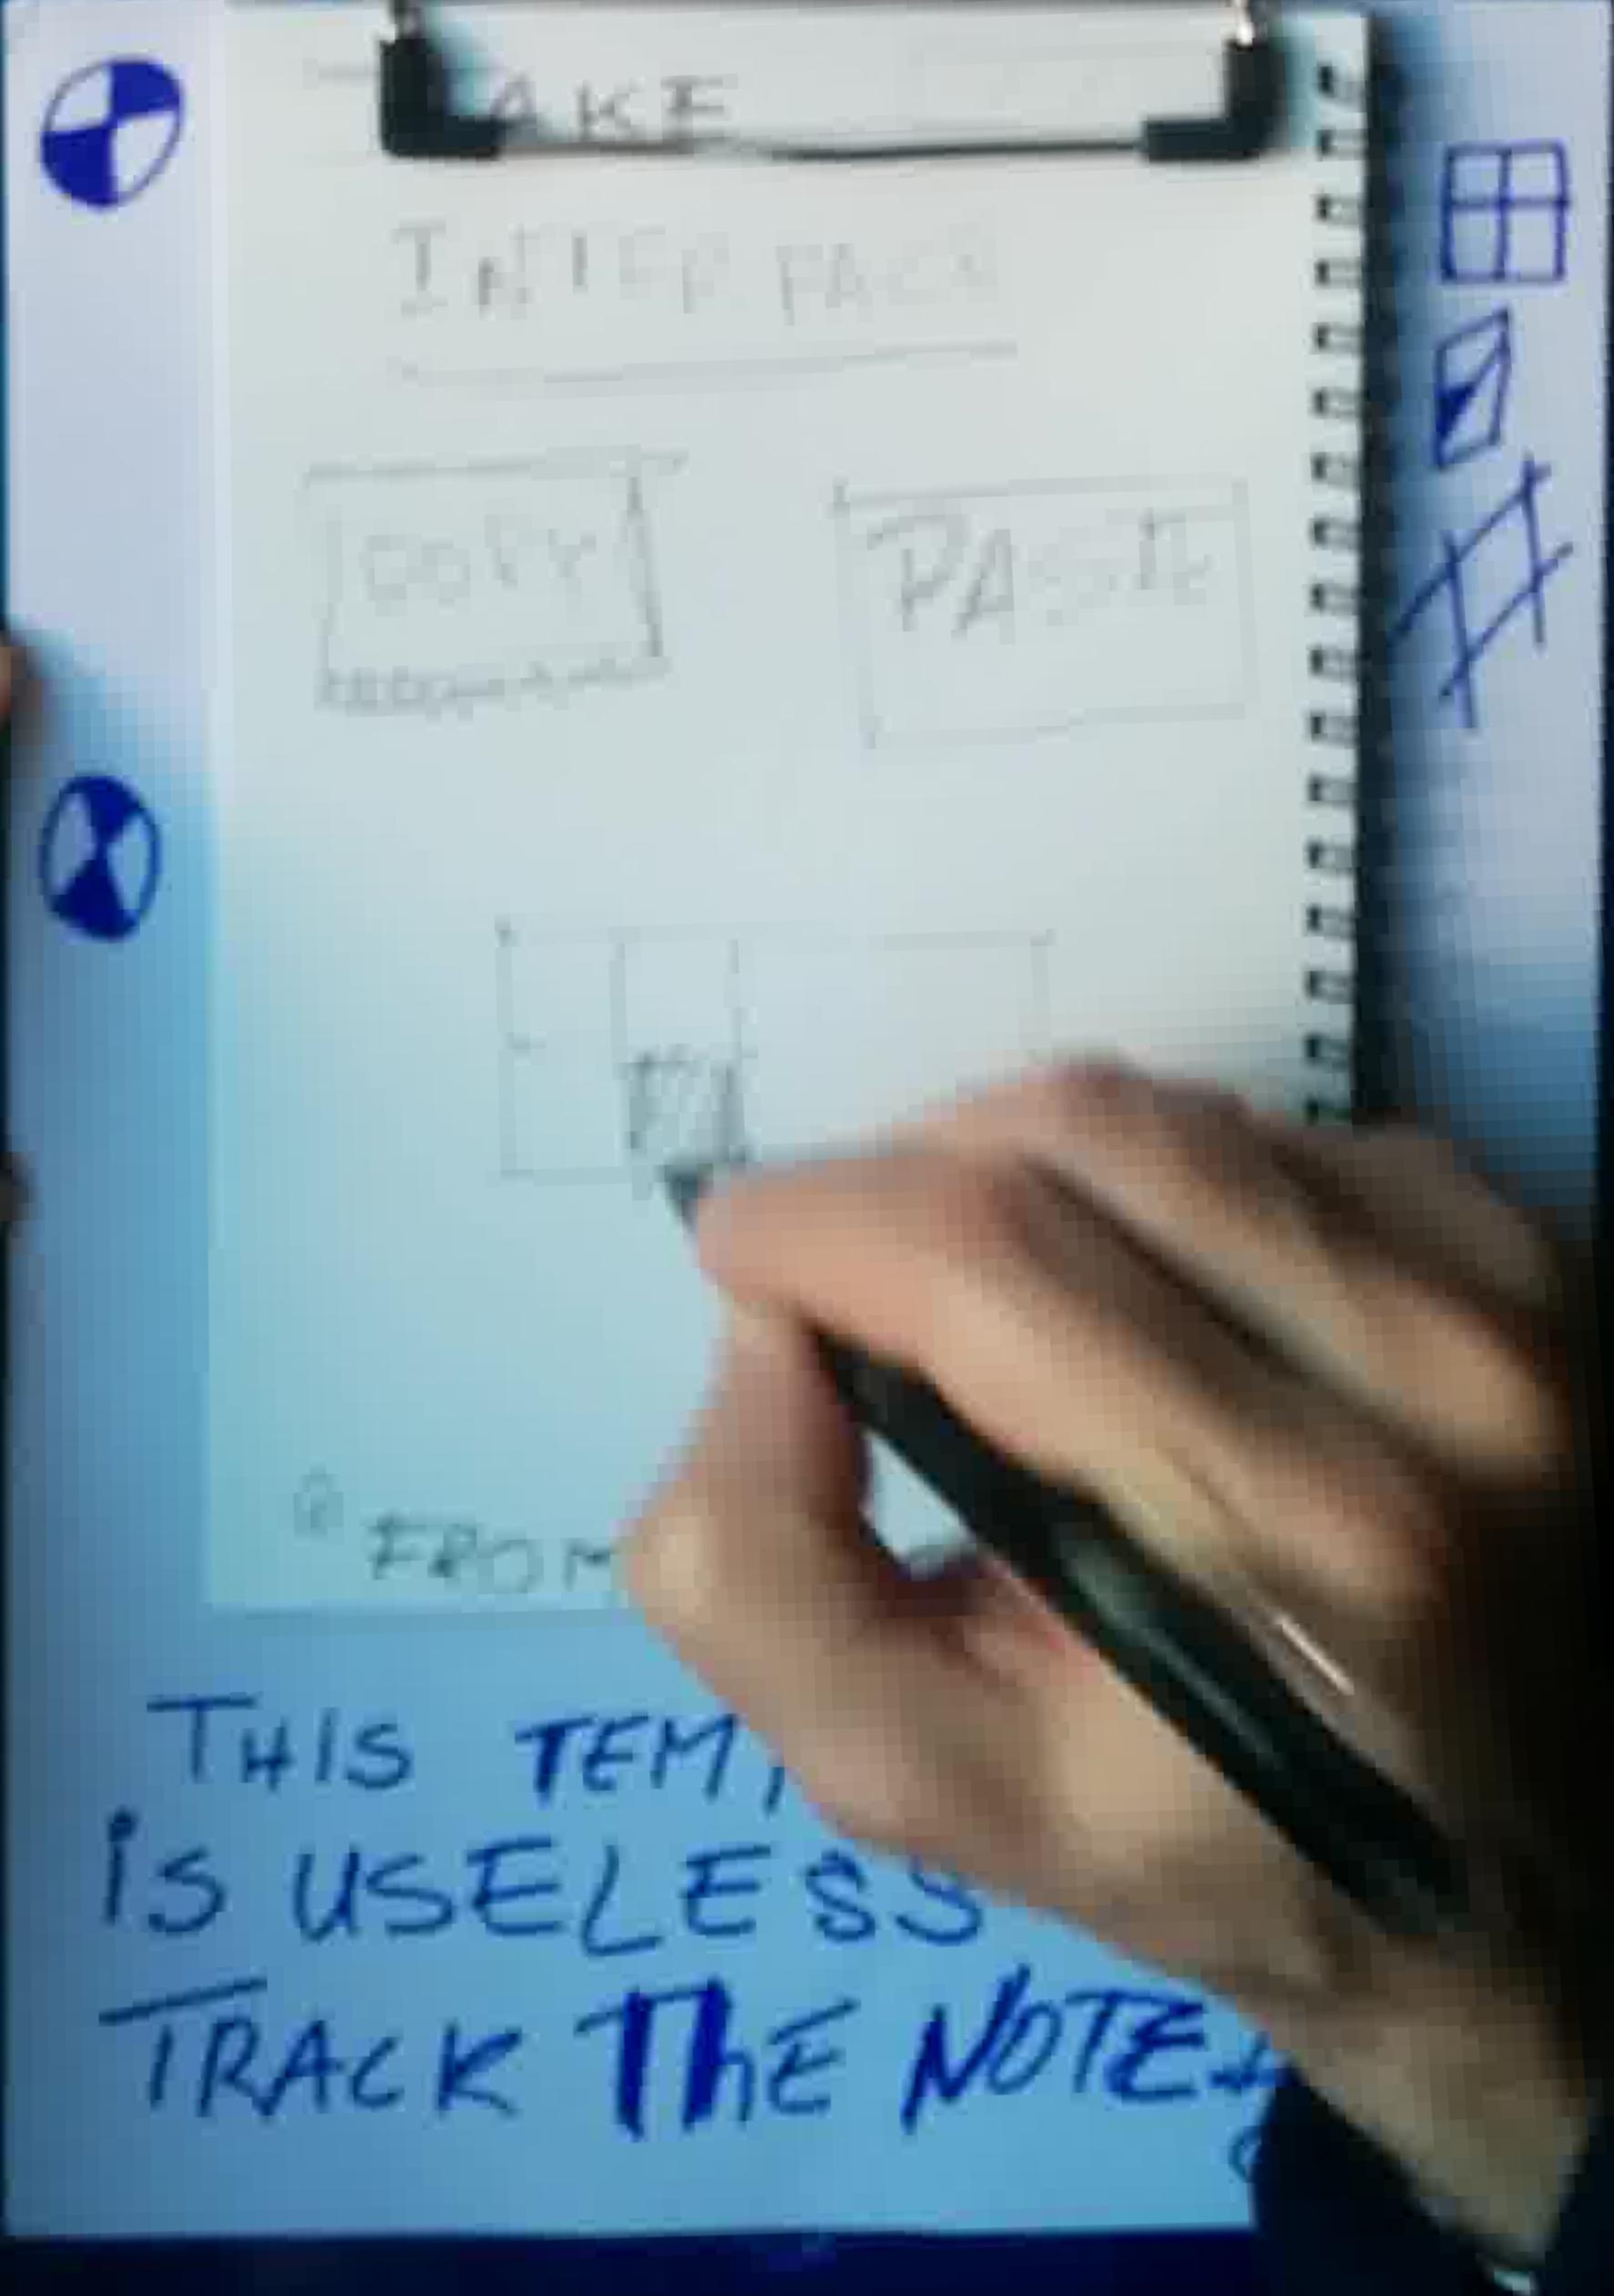 AKE
INTERFACE
COPY PASTE
FROM
THIS TEM
is USELESS
TRACK ThE NOTE